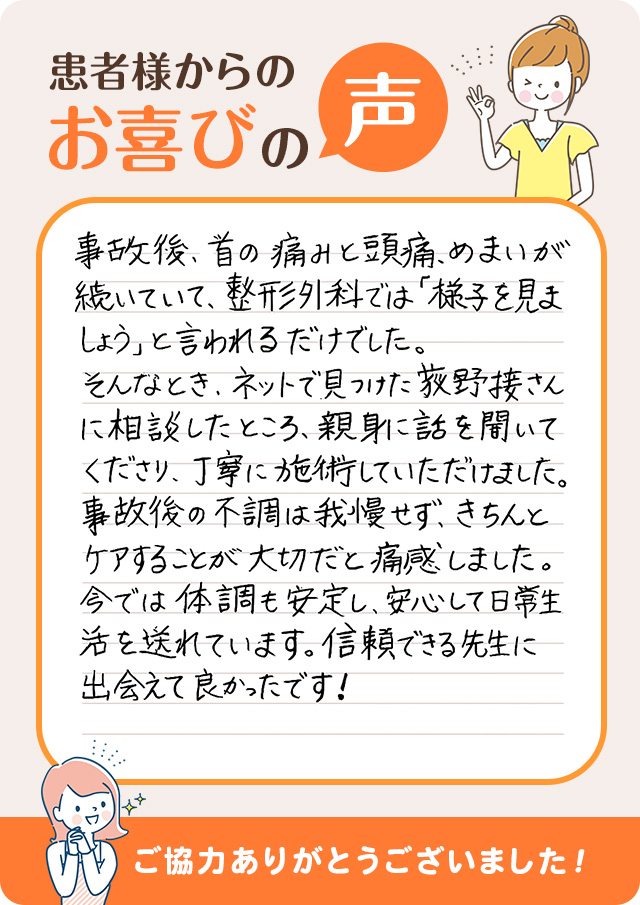 患者様からの
お喜びの声
事故後、首の痛みと頭痛、めまいが
続いていて、整形外科では「様子を見ま
しょう」と言われるだけでした。
そんなとき、ネットで見つけた荻野接さん
に相談したところ、親身に話を聞いて
くださり、丁寧に施術していただけました。
事故後の不調は我慢せず、きちんと
ケアすることが大切だと痛感しました。
今では体調も安定し、安心して日常生
活を送れています。信頼できる先生に
出会えて良かったです!
ご協力ありがとうございました!